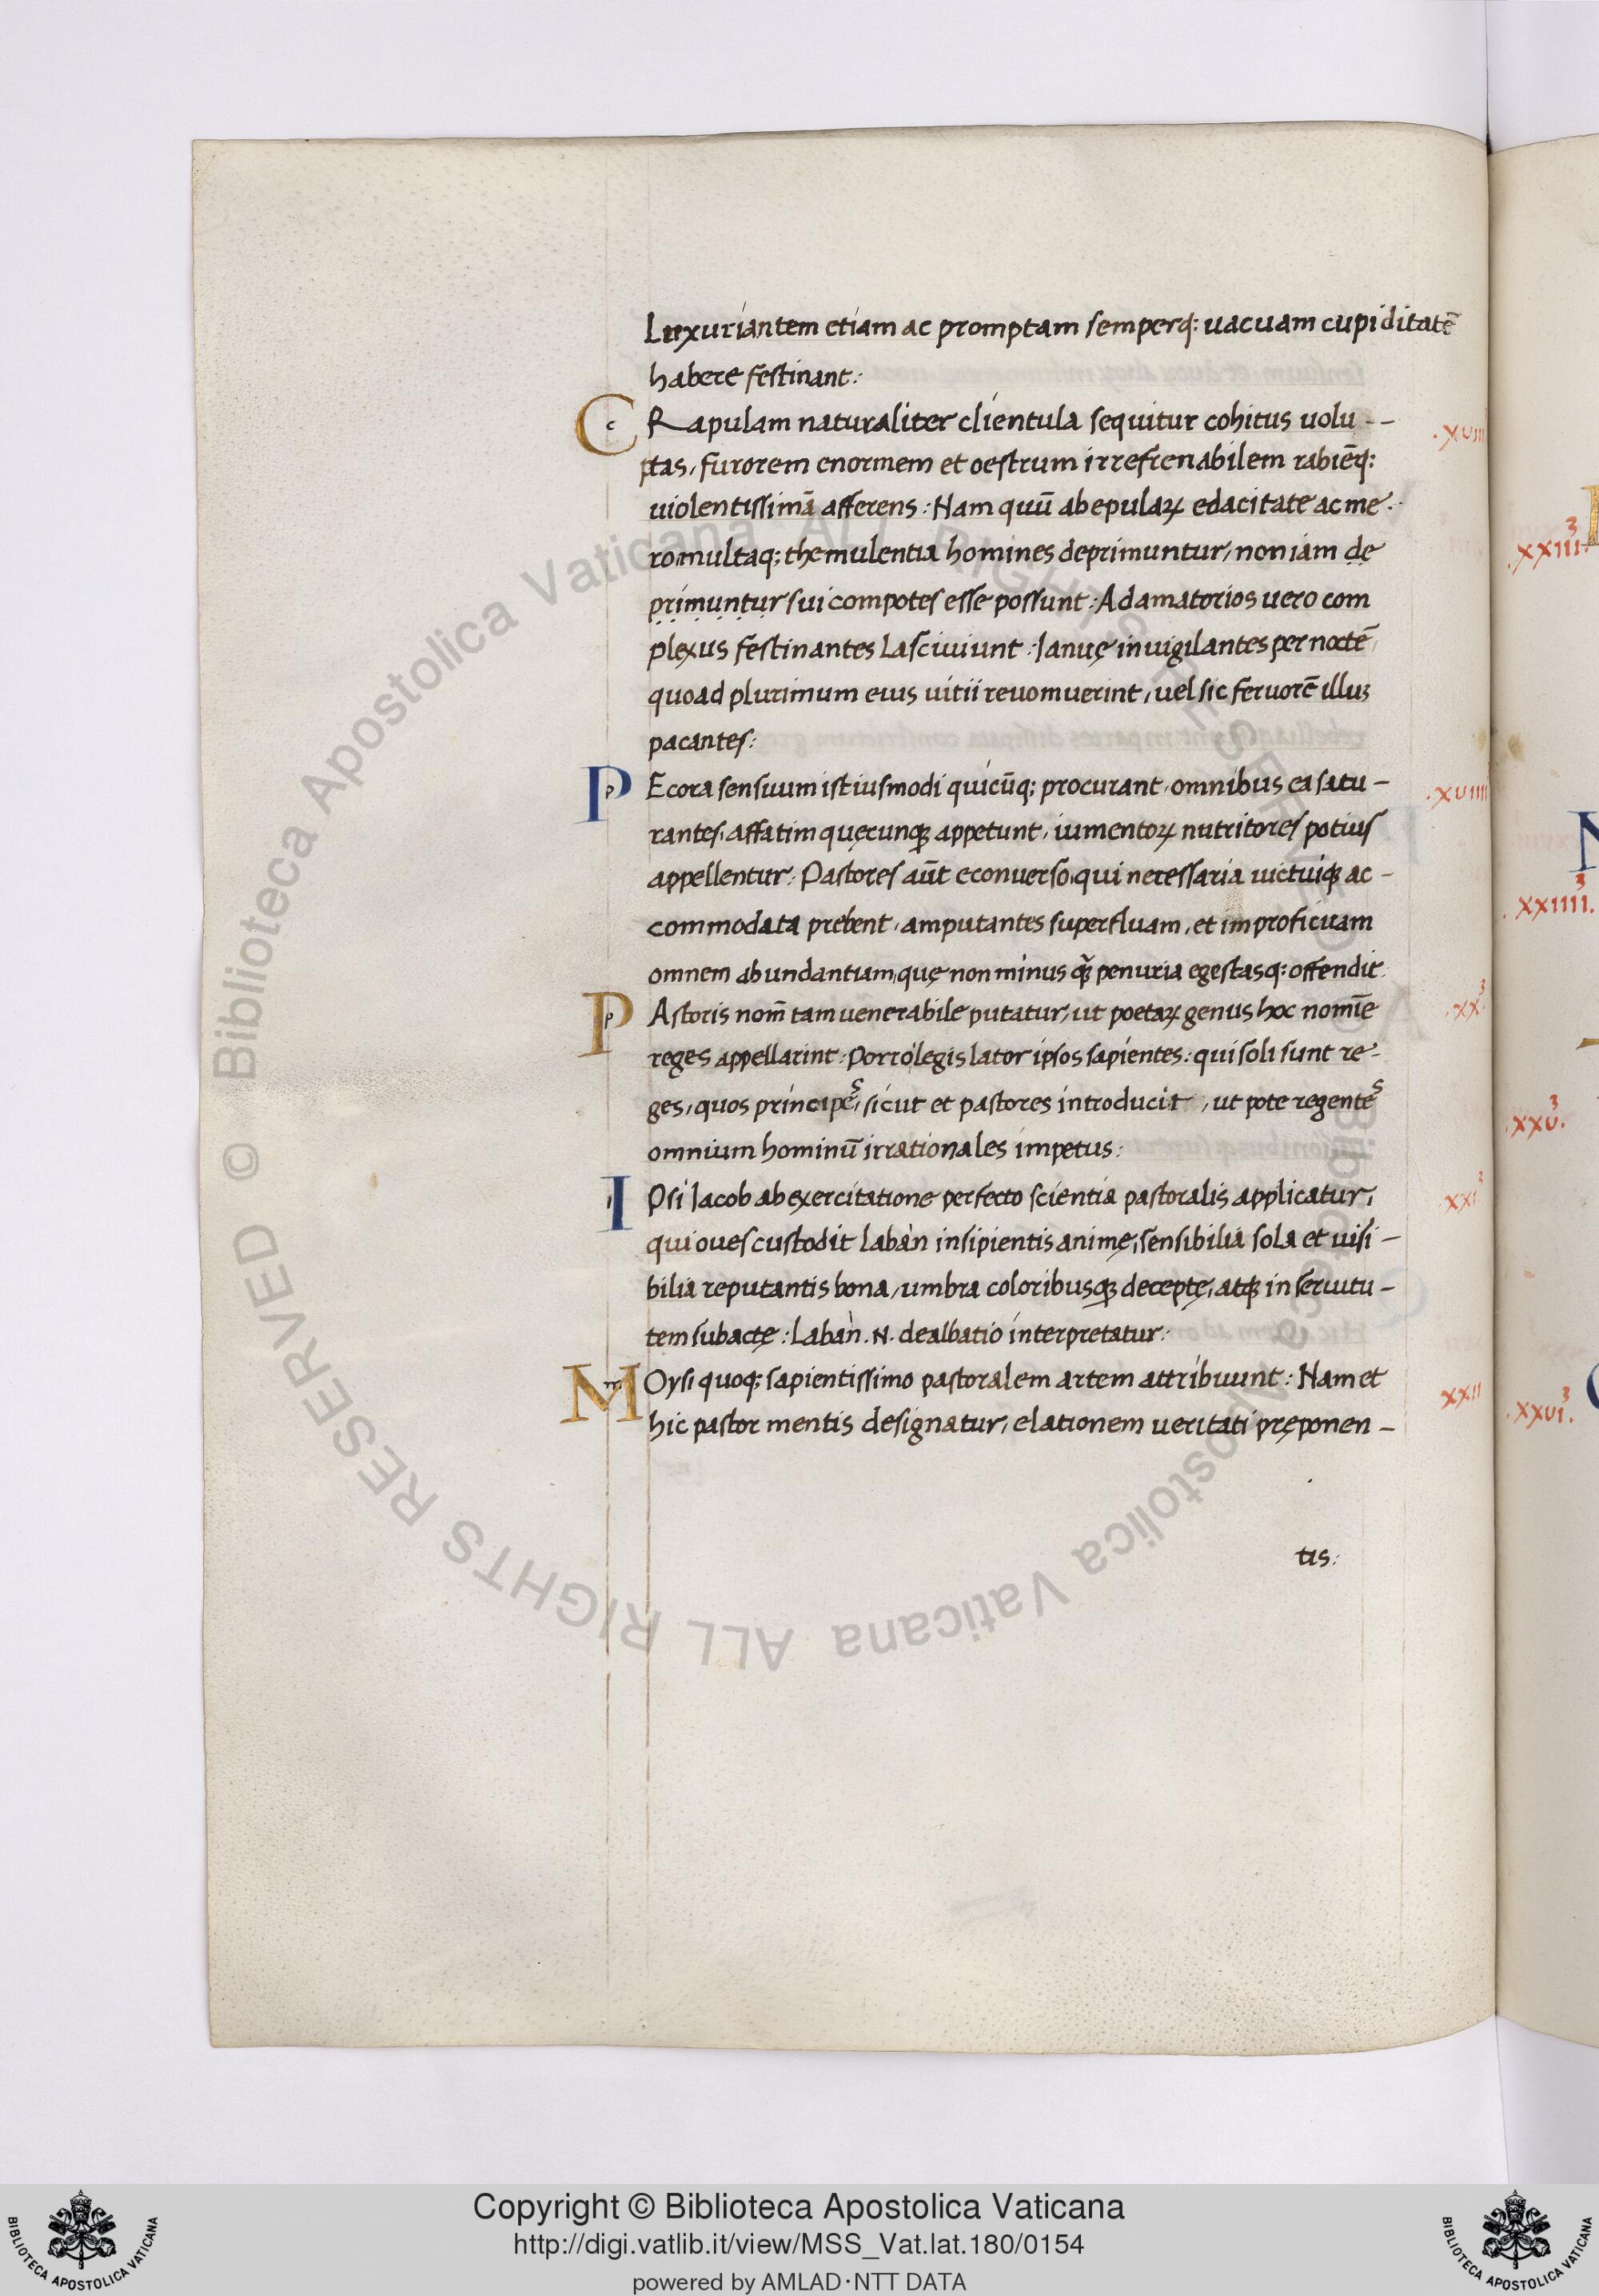 Luxuriantem etiam ac promptam semperq; uacuam cupiditatē
habere festinant:
CRapulam naturaliter clientula sequitur cohitus uolu -
ptas, furorem enormem et oestrum irrefrenabilem rabiēq;
uiolentissimā afferens: Nam quū ab epulaꝝ edacitate ac me
romultaq; themulentia homines deprimuntur, non iam de
primuntur sui compotes esse possunt: Adamatorios uero com
plexus festinantes lasciuiunt: Ianuę inuigilantes per noctē
quoad plurimum eius uitii reuomuerint, uel sic feruorē illuꝫ
pacantes:
.xuiii
PEcora sensuum istiusmodi quicūq; procurant, omnibus ea satu -
rantes, affatim quęcunqꝫ appetunt, iumentoꝝ nutritores potius
appellentur: Pastores aūt econuerso, qui necessaria uictuiqꝫ ac -
commodata prebent, amputantes superfluam, et improficuam
omnem abundantiam, quę non minus quā penuria egestasq; offendit
.xuiiii
PAstoris nom̄ tam uenerabile putatur, ut poetaꝝ genus hoc nomīe
reges appellarint: Porro legislator ipsos sapientes: qui soli sunt re -
ges, quos principes, sicut et pastores introducit, ut pote regentes
omnium hominū irrationales impetus:
.xx.
IPsi Iacob ab exercitatione perfecto scientia pastoralis applicatur,
qui oues custodit Laban insipientis animę, sensibilia sola et uisi -
bilia reputantis bona, umbra coloribusqꝫ deceptę, atqꝫ in seruitu -
tem subactę: Laban .N. dealbatio interpretatur:
xxi
MOysi quoq; sapientissimo pastoralem artem attribuunt: Nam et
hic pastor mentis designatur, elationem ueritati pręponen -
xxii
tis:
.xxiii.
.xxiiii.
.xxu.
.xxui.
© Biblioteca Apostolica Vaticana ALL RIGHTS RESERVED
© Biblioteca Apostolica Vaticana ALL RIGHTS RESERVED
Copyright © Biblioteca Apostolica Vaticana
http://digi.vatlib.it/view/MSS_Vat.lat.180/0154
powered by AMLAD·NTT DATA
BIBLIOTECA APOSTOLICA VATICANA
BIBLIOTECA APOSTOLICA VATICANA